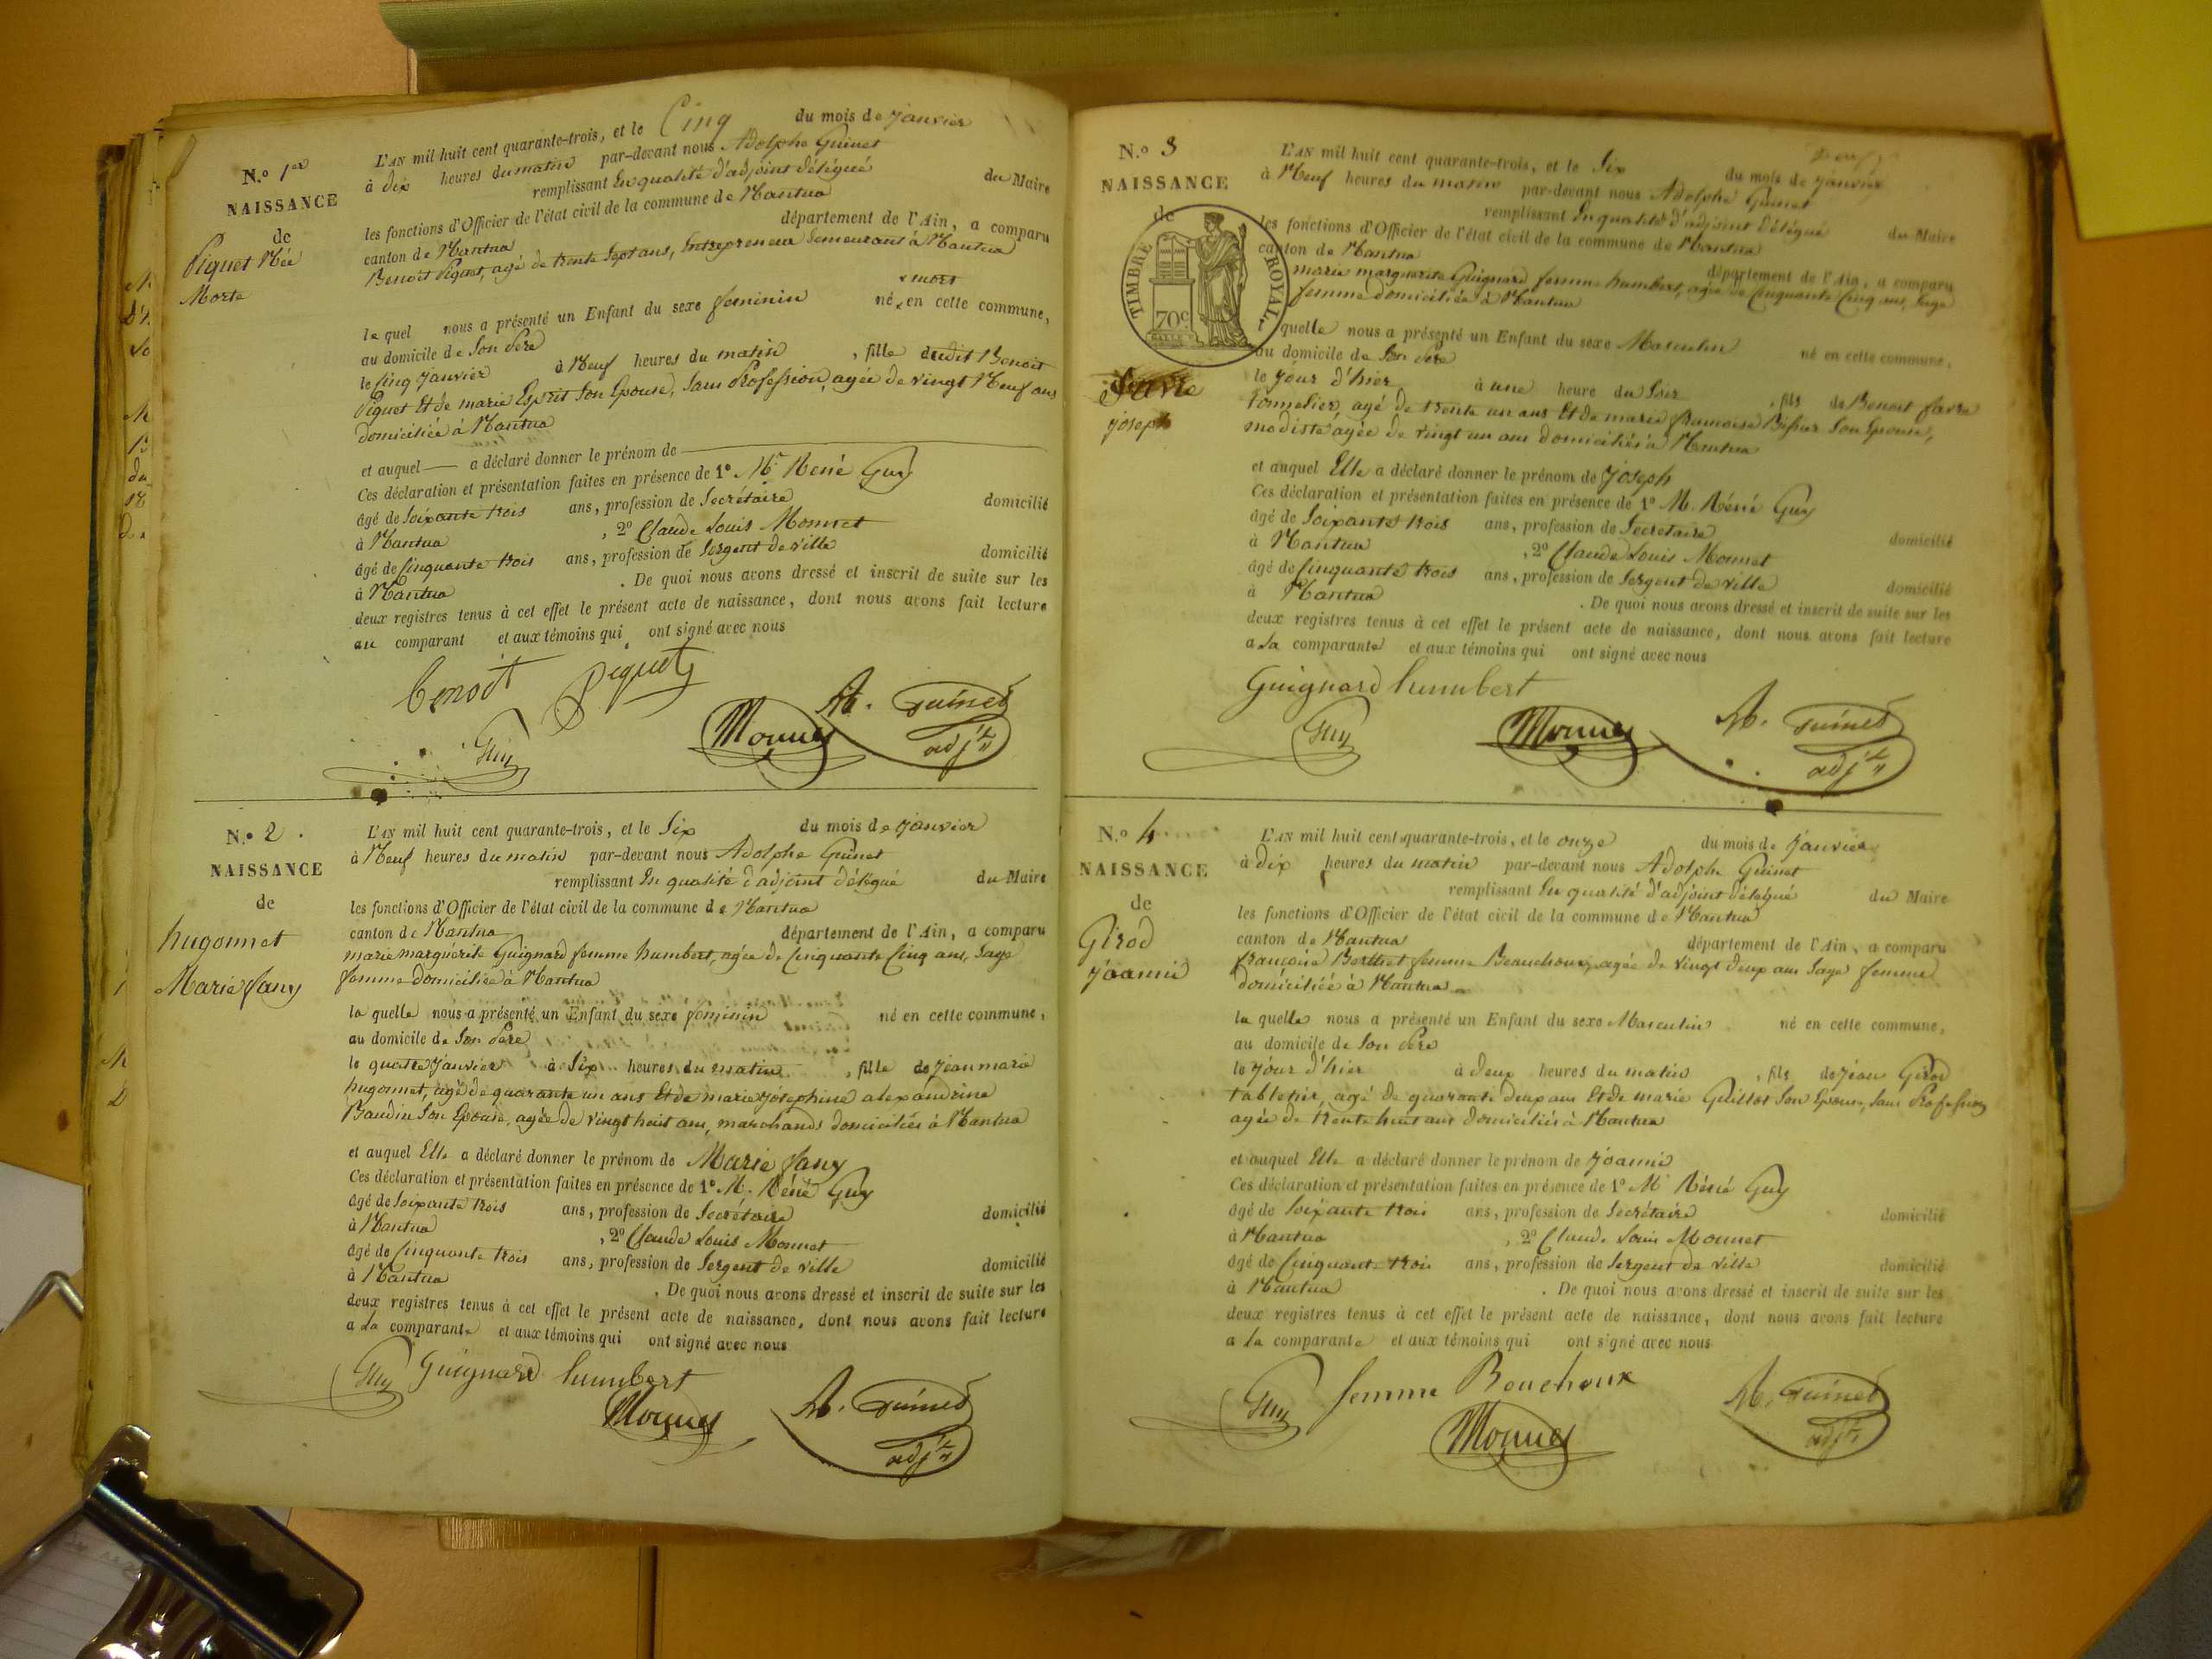 N.o 1er
NAISSANCE
de
Piguet Née
Morte
L'AN mil huit cent quarante-trois, et le Cinq du mois de Janvier
à dix heures du matin par-devant nous Adolphe Guinet
remplissant En qualité d'adjoint délégué du Maire
les fonctions d'Officier de l'état civil de la commune de Nantua
canton de Nantua département de l'Ain, a comparu
Benoit Piguet, agé de trente Sept ans, Entrepreneur demeurant à Nantua
mort
le quel nous a présenté un Enfant du sexe feminin né en cette commune,
au domicile de Son Père
le Cinq Janvier à Neuf heures du matin, fille dudit Benoit
Piguet Et de marie Esprit Son Epouse, Sans Profession, agée de vingt Neuf ans
domiciliée à Nantua
et auquel a déclaré donner le prénom de
Ces déclaration et présentation faites en présence de 1o Mr Réné Guy
âgé de Soixante trois ans, profession de Secrétaire domicilié
à Nantua, 2o Claude Louis Monnet
âgé de Cinquante trois ans, profession de Sergent de ville domicilié
à Nantua. De quoi nous avons dressé et inscrit de suite sur les
deux registres tenus à cet effet le présent acte de naissance, dont nous avons fait lecture
au comparant et aux témoins qui ont signé avec nous
Benoit Piguet
Guy Monnet A. Guinet
adjt
N.o 2.
NAISSANCE
de
hugonnet
Marie fany
L'AN mil huit cent quarante-trois, et le Six du mois de Janvier
à Neuf heures du matin par-devant nous Adolphe Guinet
remplissant En qualité d'adjoint délégué du Maire
les fonctions d'Officier de l'état civil de la commune de Nantua
canton de Nantua département de l'Ain, a comparu
marie marguerite Guignard femme humbert, agée de Cinquante Cinq ans, Sage
femme domiciliée à Nantua
la quelle nous a présenté un Enfant du sexe feminin né en cette commune,
au domicile de Son Père
le quatre Janvier à Six heures du matin, fille de Jean marie
hugonnet, agé de quarante un ans Et de marie Joséphine alexandrine
Baudin Son Epouse, agée de vingt huit ans, marchands domiciliés à Nantua
et auquel Elle a déclaré donner le prénom de Marie fany
Ces déclaration et présentation faites en présence de 1o M. Réné Guy
âgé de Soixante trois ans, profession de Secrétaire domicilié
à Nantua, 2o Claude Louis Monnet
âgé de Cinquante trois ans, profession de Sergent de ville domicilié
à Nantua. De quoi nous avons dressé et inscrit de suite sur les
deux registres tenus à cet effet le présent acte de naissance, dont nous avons fait lecture
a La comparante et aux témoins qui ont signé avec nous
Guy Guignard humbert
Monnet A. Guinet
adjt
N.o 3
NAISSANCE
de
TIMBRE ROYAL
70c
favre
joseph
L'AN mil huit cent quarante-trois, et le Six du mois de Janvier
à Neuf heures du matin par-devant nous Adolphe Guinet
remplissant En qualité d'adjoint délégué du Maire
les fonctions d'Officier de l'état civil de la commune de Nantua
canton de Nantua département de l'Ain, a comparu
marie marguerite Guignard femme humbert, agée de Cinquante Cinq ans, Sage
femme domiciliée à Nantua
quelle nous a présenté un Enfant du sexe Masculin né en cette commune,
au domicile de Son Père
le jour d'hier à une heure du Soir, fils de Benoit favre
tonnelier, agé de trente un ans Et de marie françoise Son Epouse,
modiste agée de vingt un ans domiciliés à Nantua
et auquel Elle a déclaré donner le prénom de Joseph
Ces déclaration et présentation faites en présence de 1o M. Réné Guy
âgé de Soixante trois ans, profession de Secretaire domicilié
à Nantua, 2o Claude Louis Monnet
âgé de Cinquante trois ans, profession de Sergent de ville domicilié
à Nantua. De quoi nous avons dressé et inscrit de suite sur les
deux registres tenus à cet effet le présent acte de naissance, dont nous avons fait lecture
a La comparante et aux témoins qui ont signé avec nous
Guignard humbert
Guy Monnet A. Guinet
adjt
N.o 4
NAISSANCE
de
Girod
joanni
L'AN mil huit cent quarante-trois, et le onze du mois de Janvier
à dix heures du matin par-devant nous Adolphe Guinet
remplissant En qualité d'adjoint délégué du Maire
les fonctions d'Officier de l'état civil de la commune de Nantua
canton de Nantua département de l'Ain, a comparu
françoise Berthet femme Beauchoux, agée de vingt deux ans Sage femme
domiciliée à Nantua
la quelle nous a présenté un Enfant du sexe Masculin né en cette commune,
au domicile de Son Père
le jour d'hier à deux heures du matin, fils de Jean Girod
tabletier, agé de quarante deux ans Et de marie Guillot Son Epouse, Sans Profession
agée de trente huit ans domiciliés à Nantua
et auquel Elle a déclaré donner le prénom de Joanni
Ces déclaration et présentation faites en présence de 1o Mr Réné Guy
âgé de Soixante trois ans, profession de Secrétaire domicilié
à Nantua, 2o Claude Louis Monnet
âgé de Cinquante trois ans, profession de Sergent de ville domicilié
à Nantua. De quoi nous avons dressé et inscrit de suite sur les
deux registres tenus à cet effet le présent acte de naissance, dont nous avons fait lecture
a la comparante et aux témoins qui ont signé avec nous
Guy femme Bouchoux
Monnet A. Guinet
adjt